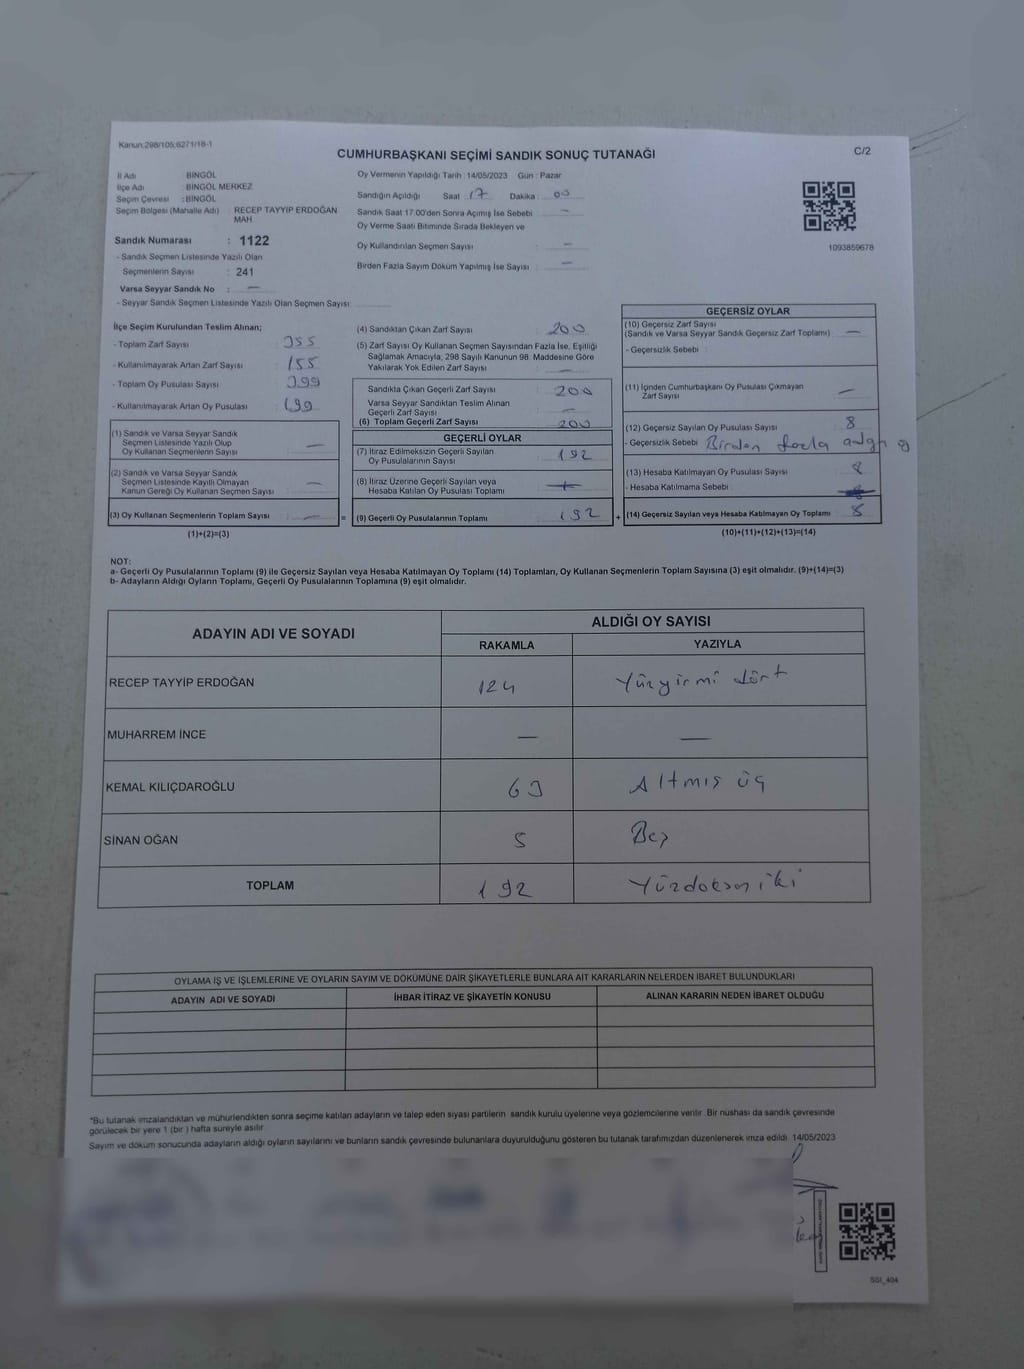 Kanun:298/105;6271/18-1
CUMHURBAŞKANI SEÇİMİ SANDIK SONUÇ TUTANAĞI
C/2
İl Adı : BİNGÖL
İlçe Adı : BİNGÖL MERKEZ
Seçim Çevresi : BİNGÖL
Seçim Bölgesi (Mahalle Adı) : RECEP TAYYİP ERDOĞAN MAH
Sandık Numarası : 1122
- Sandık Seçmen Listesinde Yazılı Olan
Seçmenlerin Sayısı : 241
Varsa Seyyar Sandık No : —
- Seyyar Sandık Seçmen Listesinde Yazılı Olan Seçmen Sayısı:
Oy Vermenin Yapıldığı Tarih :14/05/2023 Gün : Pazar
Sandığın Açıldığı Saat : 17 Dakika : 00
Sandık Saat 17:00'den Sonra Açımış İse Sebebi : —
Oy Verme Saati Bitiminde Sırada Bekleyen ve
Oy Kullandırılan Seçmen Sayısı : —
Birden Fazla Sayım Döküm Yapılmış İse Sayısı : —
1093859678
İlçe Seçim Kurulundan Teslim Alınan;
- Toplam Zarf Sayısı : 355
- Kullanılmayarak Artan Zarf Sayısı : 155
- Toplam Oy Pusulası Sayısı : 399
- Kullanılmayarak Artan Oy Pusulası : 199
(1) Sandık ve Varsa Seyyar Sandık
Seçmen Listesinde Yazılı Olup
Oy Kullanan Seçmenlerin Sayısı : —
(2) Sandık ve Varsa Seyyar Sandık
Seçmen Listesinde Kayıtlı Olmayan
Kanun Gereği Oy Kullanan Seçmen Sayısı : —
(3) Oy Kullanan Seçmenlerin Toplam Sayısı : —
(1)+(2)=(3)
(4) Sandıktan Çıkan Zarf Sayısı : 200
(5) Zarf Sayısı Oy Kullanan Seçmen Sayısından Fazla İse, Eşitliği
Sağlamak Amacıyla, 298 Sayılı Kanunun 98. Maddesine Göre
Yakılarak Yok Edilen Zarf Sayısı : —
Sandıkta Çıkan Geçerli Zarf Sayısı : 200
Varsa Seyyar Sandıktan Teslim Alınan
Geçerli Zarf Sayısı : —
(6) Toplam Geçerli Zarf Sayısı : 200
GEÇERLİ OYLAR
(7) İtiraz Edilmeksizin Geçerli Sayılan
Oy Pusulalarının Sayısı : 192
(8) İtiraz Üzerine Geçerli Sayılan veya
Hesaba Katılan Oy Pusulası Toplamı :
= (9) Geçerli Oy Pusulalarının Toplamı : 192
GEÇERSİZ OYLAR
(10) Geçersiz Zarf Sayısı
(Sandık ve Varsa Seyyar Sandık Geçersiz Zarf Toplamı) : —
- Geçersizlik Sebebi :
(11) İçinden Cumhurbaşkanı Oy Pusulası Çıkmayan
Zarf Sayısı : —
(12) Geçersiz Sayılan Oy Pusulası Sayısı : 8
- Geçersizlik Sebebi : Birden fazla
(13) Hesaba Katılmayan Oy Pusulası Sayısı : 8
- Hesaba Katılmama Sebebi :
+ (14) Geçersiz Sayılan veya Hesaba Katılmayan Oy Toplamı : 8
(10)+(11)+(12)+(13)=(14)
NOT:
a- Geçerli Oy Pusulalarının Toplamı (9) ile Geçersiz Sayılan veya Hesaba Katılmayan Oy Toplamı (14) Toplamları, Oy Kullanan Seçmenlerin Toplam Sayısına (3) eşit olmalıdır. (9)+(14)=(3)
b- Adayların Aldığı Oyların Toplamı, Geçerli Oy Pusulalarının Toplamına (9) eşit olmalıdır.
ADAYIN ADI VE SOYADI
ALDIĞI OY SAYISI
RAKAMLA YAZIYLA
RECEP TAYYİP ERDOĞAN 124 Yüzyirmi dört
MUHARREM İNCE — —
KEMAL KILIÇDAROĞLU 63 Altmış üç
SİNAN OĞAN 5 Beş
TOPLAM 192 Yüzdoksan iki
OYLAMA İŞ VE İŞLEMLERİNE VE OYLARIN SAYIM VE DÖKÜMÜNE DAİR ŞİKAYETLERLE BUNLARA AİT KARARLARIN NELERDEN İBARET BULUNDUKLARI
ADAYIN ADI VE SOYADI İHBAR İTİRAZ VE ŞİKAYETİN KONUSU ALINAN KARARIN NEDEN İBARET OLDUĞU
*Bu tutanak imzalandıktan ve mühürlendikten sonra seçime katılan adayların ve talep eden siyasi partilerin sandık kurulu üyelerine veya gözlemcilerine verilir. Bir nüshası da sandık çevresinde
görülecek bir yere 1 (bir) hafta süreyle asılır.
Sayım ve döküm sonucunda adayların aldığı oyların sayılarını ve bunların sandık çevresinde bulunanlara duyurulduğunu gösteren bu tutanak tarafımızdan düzenlenerek imza edildi. 14/05/2023
SSI_404